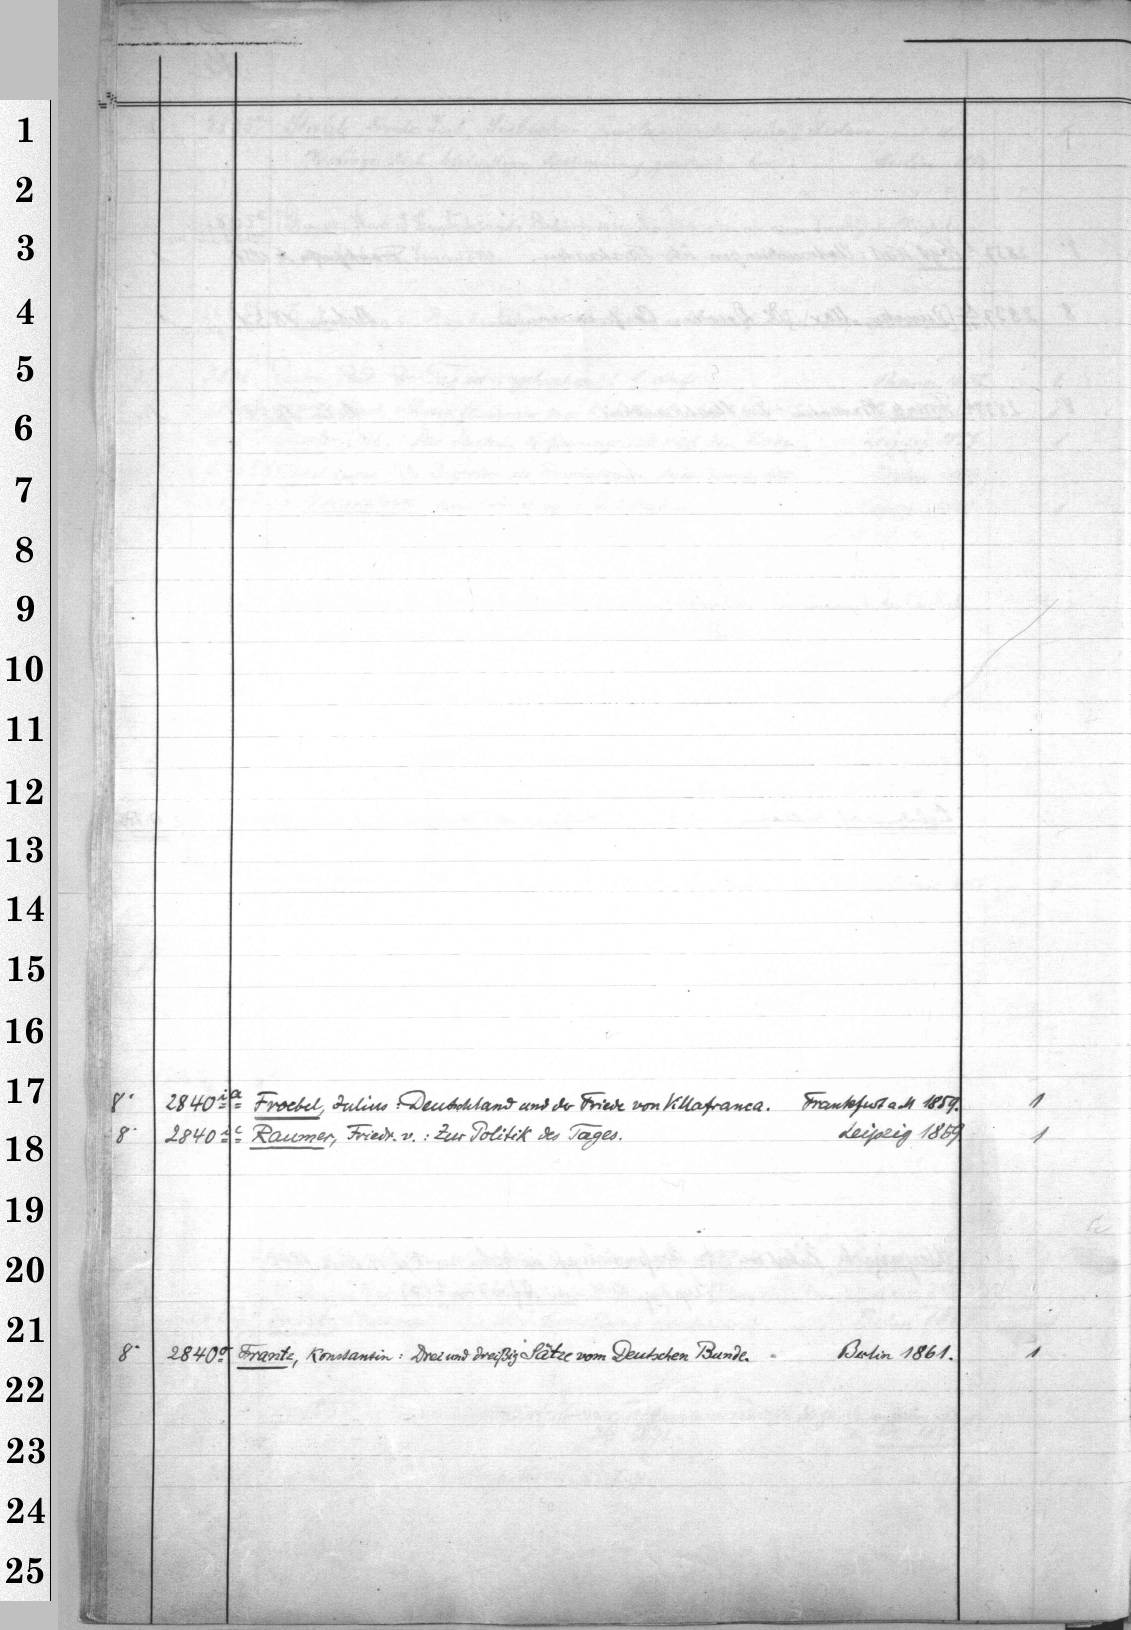 1
2
3
4
5
6
7
8
9
10
11
12
13
14
15
16
17
8° 2840 i a Froebel, Julius: Deutschland und der Friede von Villafranca. Frankfurt a M 1859. 1
8° 2840 i c Raumer, Friedr. v.: Zur Politik des Tages. Leipzig 1859 1
18
19
20
21
8° 2840 o Frantz, Konstantin: Drei und dreißig Sätze vom Deutschen Bunde. Berlin 1861. 1
22
23
24
25